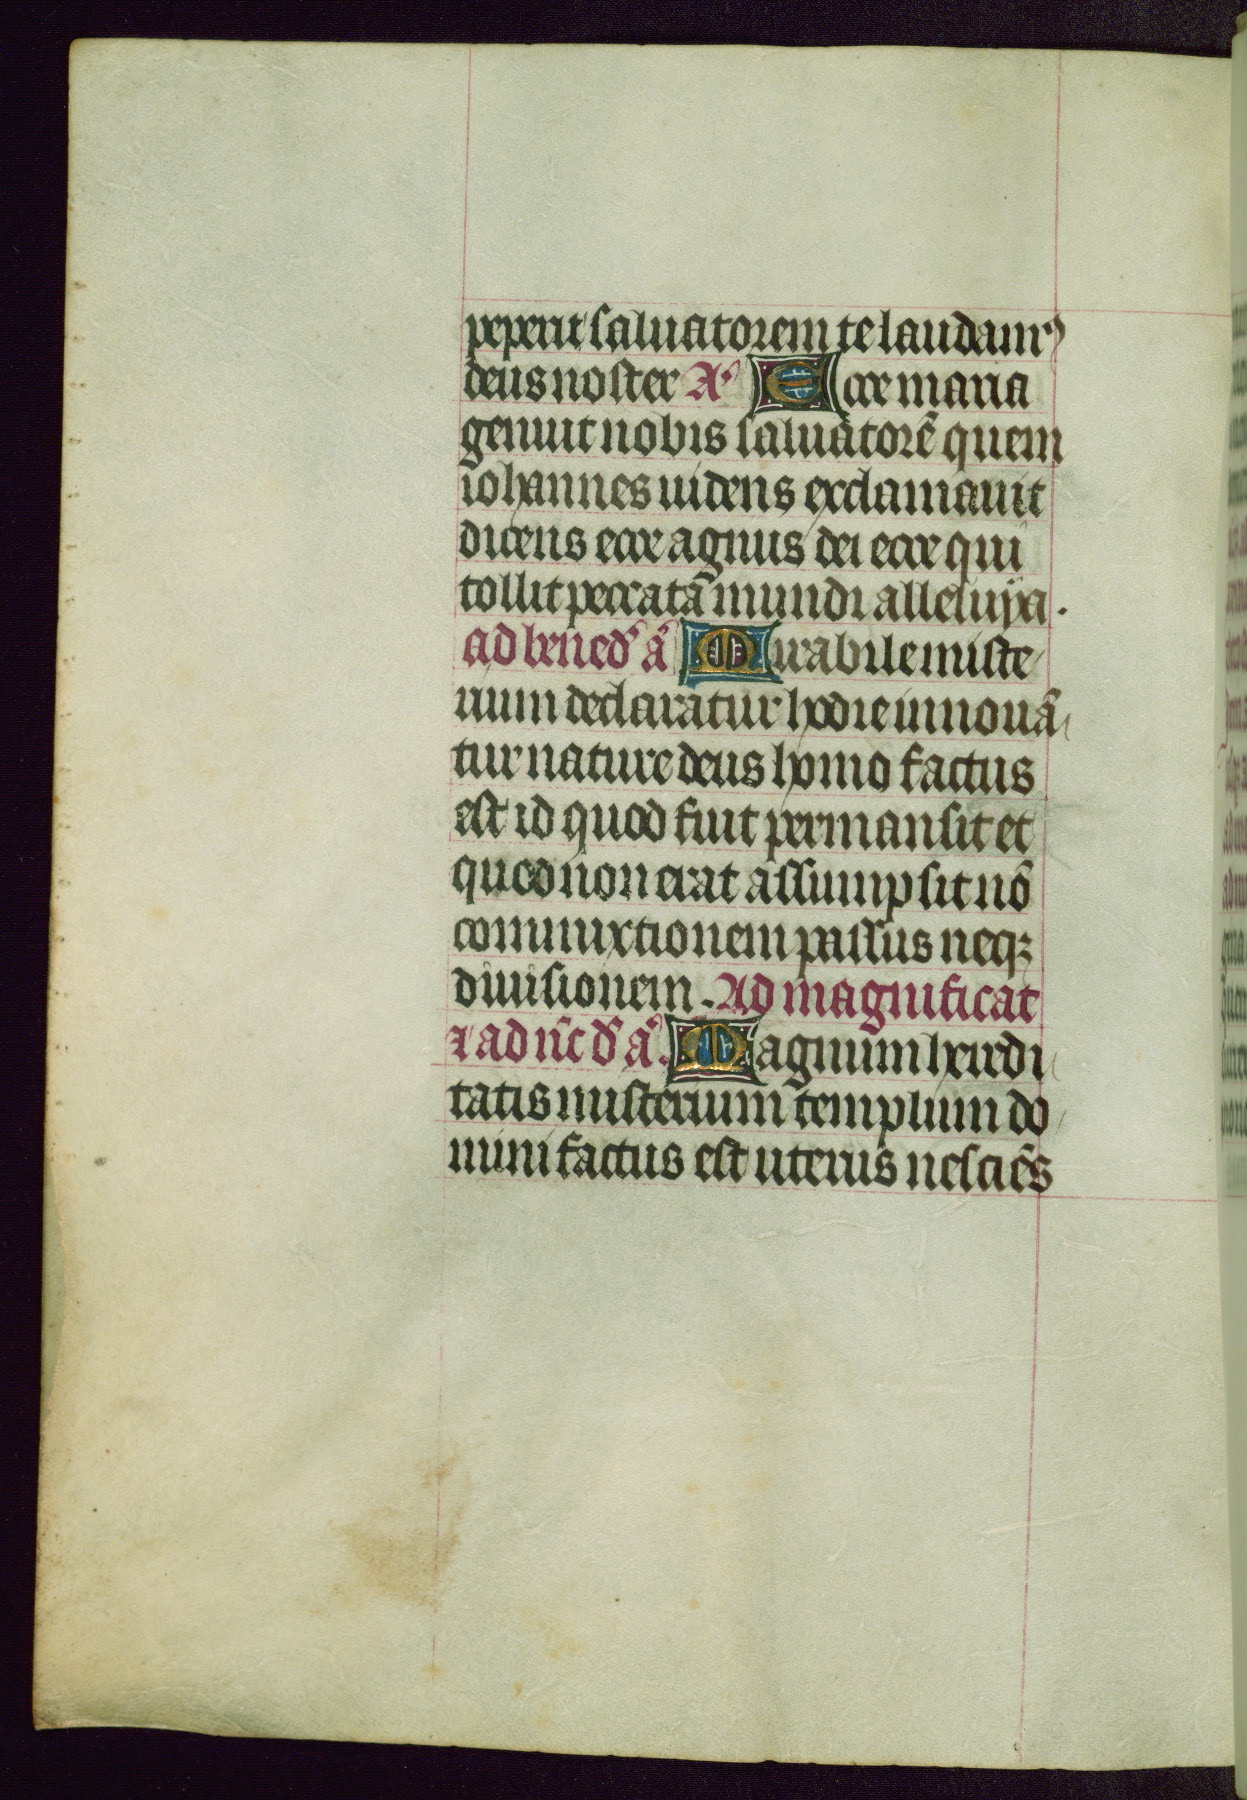 peperit saluatorem te laudam᷒
deus noster A᷒ Ecce maria
genuit nobis saluatorē quem
iohannes uidens exclamauit
dicens ecce agnus dei ecce qui
tollit peccata mundi alleluya.
ad bened᷒ ā Mirabile miste
rium declaratur hodie innouā
tur nature deus homo factus
est id quod fuit permansit et
quod non erat assumpsit nō
commixtionem passus neqꝫ
diuisionem. Ad magnificat
⁊ ad nūc d᷒ ā. Magnum heredi
tatis misterium templum do
mini factus est uterus nesciēs